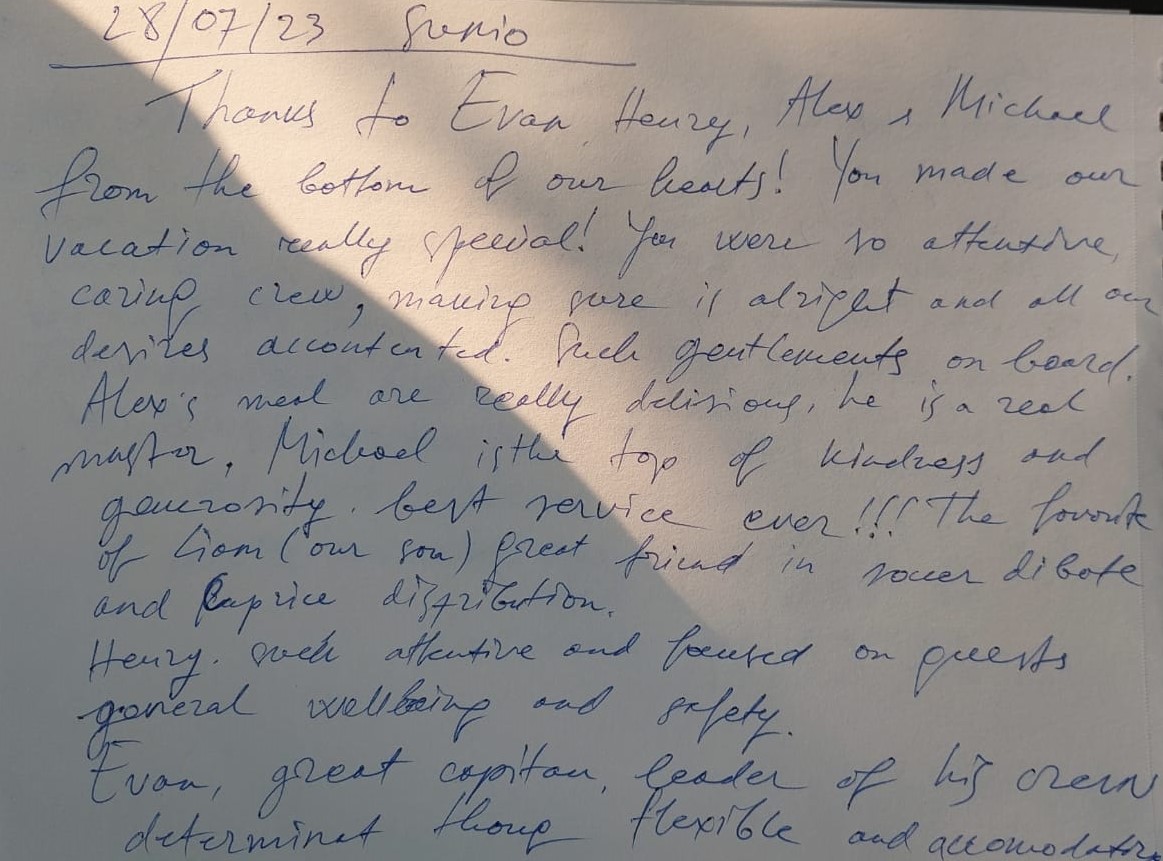 28/07/23
Thanks to Evan, Henry, Alex & Michael
from the bottom of our hearts! You made our
vacation really special! You were so attentive,
caring crew, making sure is alright and all our
desires accontented. Such gentlements on board.
Alex's meal are really delisious, he is a real
mastor, Michael is the top of kindness and
generosity. best service ever!!! The favorite
of Liam (our son) great friend in soccer dibate
and Caprice distribution.
Henry. such attentive and foucused on guests
general wellbeing and safety.
Evan, great capitan, leader of his crew
determinat thoug flexible and accomodating